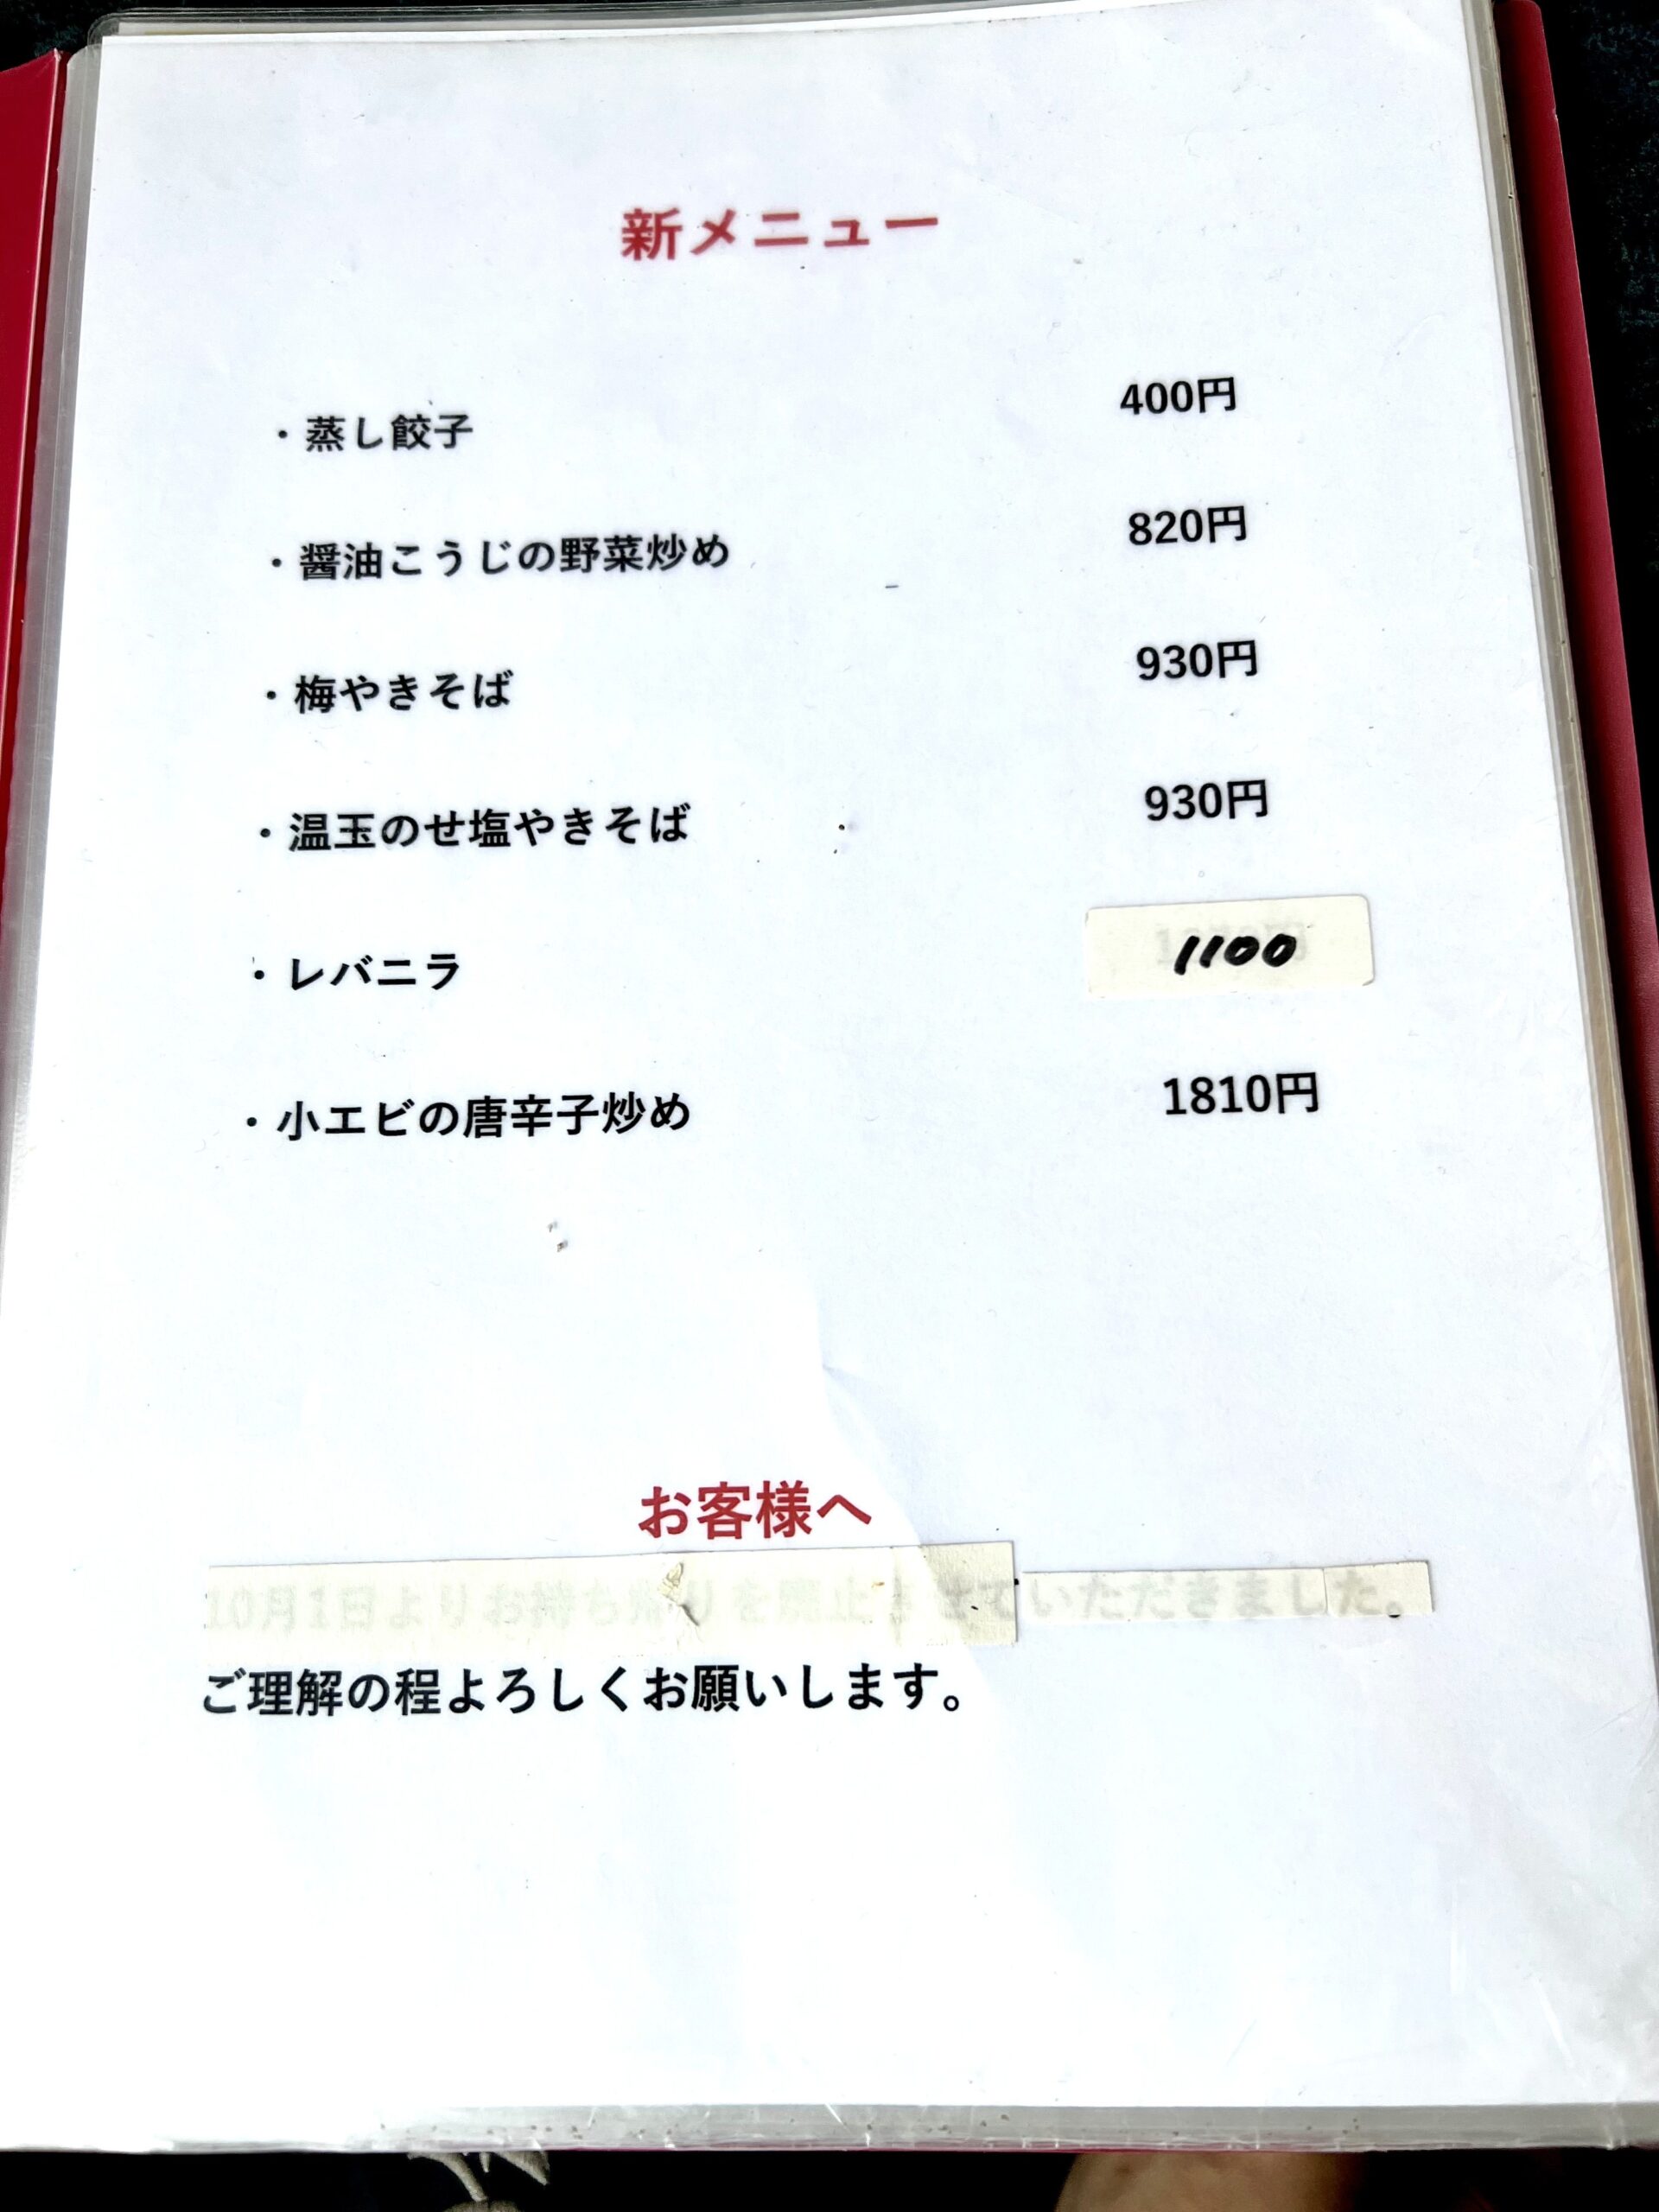 新メニュー
・蒸し餃子 400円
・醤油こうじの野菜炒め 820円
・梅やきそば 930円
・温玉のせ塩やきそば 930円
・レバニラ 1100
・小エビの唐辛子炒め 1810円
お客様へ
10月1日よりお持ち帰りを廃止させていただきました。
ご理解の程よろしくお願いします。